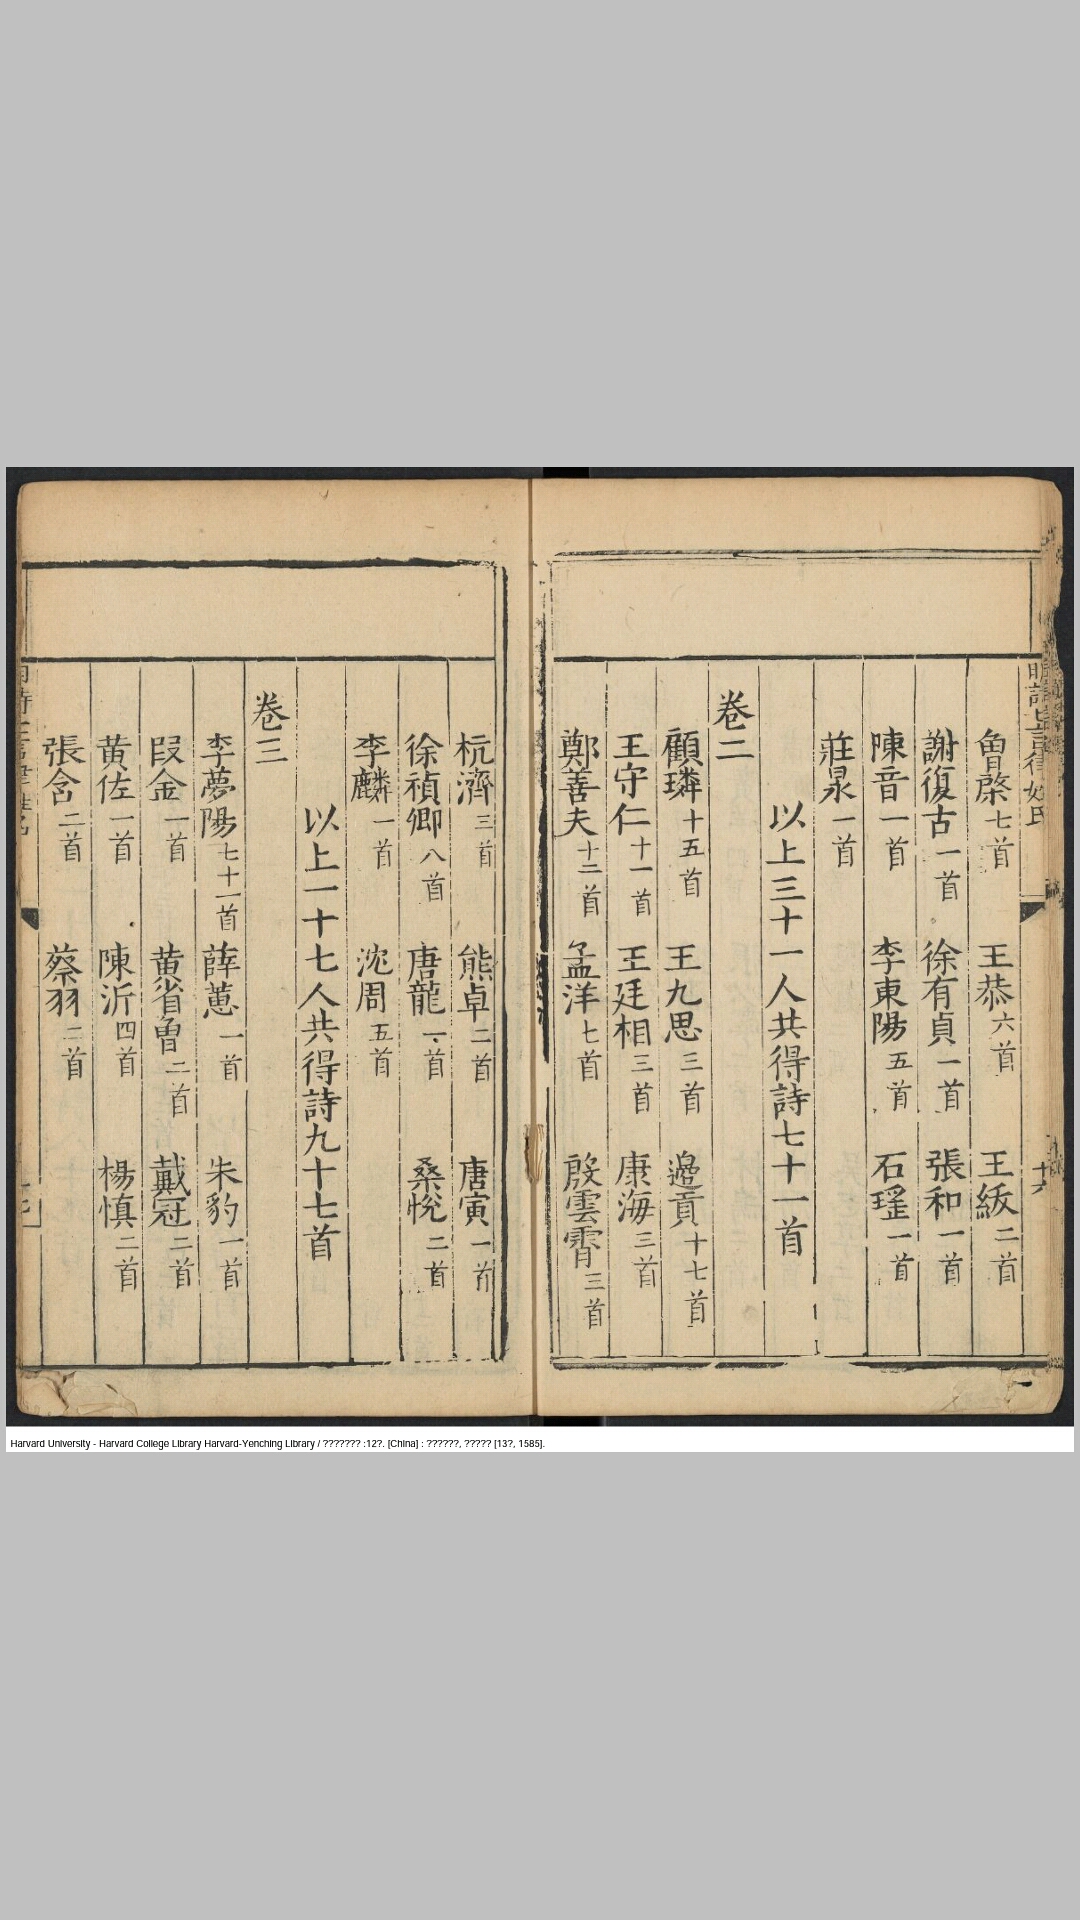 魯棨七首 王恭六首 王紱二首
謝復古一首 徐有貞一首 張和一首
陳音一首 李東陽五首 石瑶一首
莊泉一首
以上三十一人共得詩七十一首
卷二
顧璘十五首 王九思三首 邊貢十七首
王守仁十一首 王廷相三首 康海三首
鄭善夫十二首 孟洋七首 殷雲霄三首
杭濟三首 熊卓二首 唐寅一首
徐禎卿八首 唐龍一首 桑悅二首
李麟一首 沈周五首
以上一十七人共得詩九十七首
卷三
李夢陽七十一首 薛蕙一首 朱豹一首
叚金一首 黄省曾二首 戴冠二首
黄佐一首 陳沂四首 楊慎二首
張含二首 蔡羽二首
Harvard University - Harvard College Library Harvard-Yenching Library / ??????? :12?. [China] : ??????, ????? [13?, 1585].